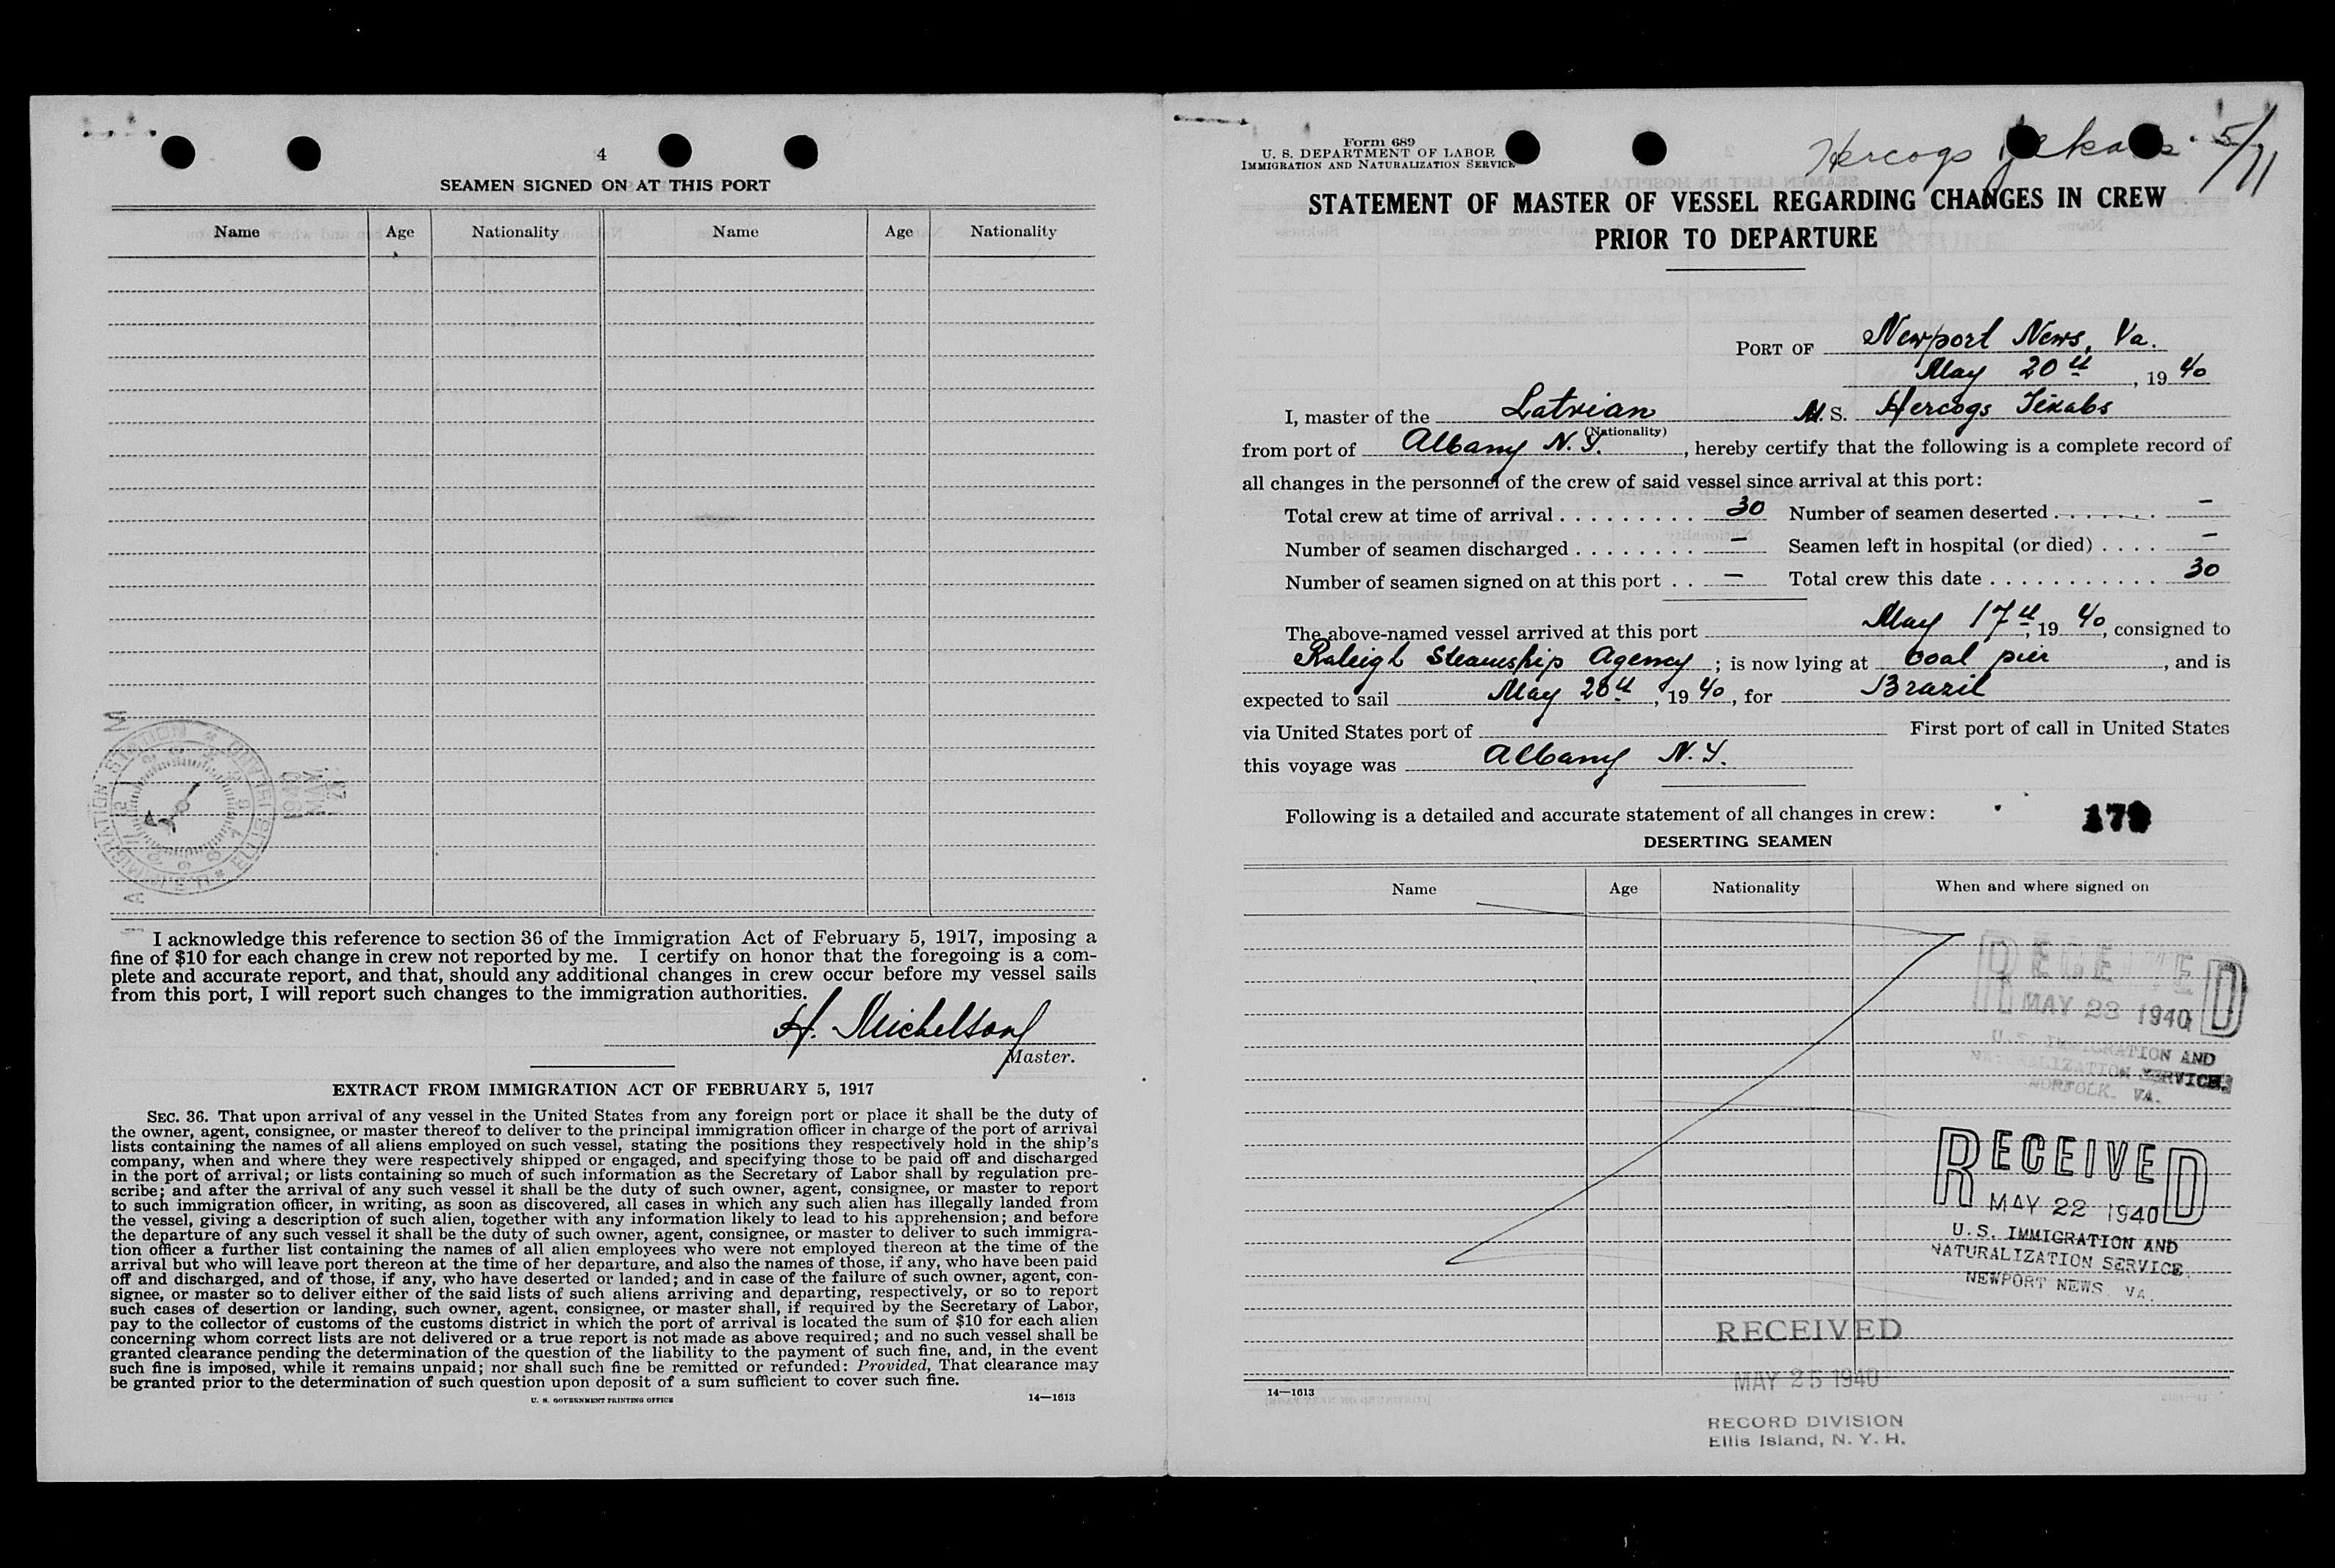 4
SEAMEN SIGNED ON AT THIS PORT
Name Age Nationality Name Age Nationality
I acknowledge this reference to section 36 of the Immigration Act of February 5, 1917, imposing a
fine of $10 for each change in crew not reported by me. I certify on honor that the foregoing is a com-
plete and accurate report, and that, should any additional changes in crew occur before my vessel sails
from this port, I will report such changes to the immigration authorities.
H. Michelson
Master.
EXTRACT FROM IMMIGRATION ACT OF FEBRUARY 5, 1917
SEC. 36. That upon arrival of any vessel in the United States from any foreign port or place it shall be the duty of
the owner, agent, consignee, or master thereof to deliver to the principal immigration officer in charge of the port of arrival
lists containing the names of all aliens employed on such vessel, stating the positions they respectively hold in the ship's
company, when and where they were respectively shipped or engaged, and specifying those to be paid off and discharged
in the port of arrival; or lists containing so much of such information as the Secretary of Labor shall by regulation pre-
scribe; and after the arrival of any such vessel it shall be the duty of such owner, agent, consignee, or master to report
to such immigration officer, in writing, as soon as discovered, all cases in which any such alien has illegally landed from
the vessel, giving a description of such alien, together with any information likely to lead to his apprehension; and before
the departure of any such vessel it shall be the duty of such owner, agent, consignee, or master to deliver to such immigra-
tion officer a further list containing the names of all alien employees who were not employed thereon at the time of the
arrival but who will leave port thereon at the time of her departure, and also the names of those, if any, who have been paid
off and discharged, and of those, if any, who have deserted or landed; and in case of the failure of such owner, agent, con-
signee, or master so to deliver either of the said lists of such aliens arriving and departing, respectively, or so to report
such cases of desertion or landing, such owner, agent, consignee, or master shall, if required by the Secretary of Labor,
pay to the collector of customs of the customs district in which the port of arrival is located the sum of $10 for each alien
concerning whom correct lists are not delivered or a true report is not made as above required; and no such vessel shall be
granted clearance pending the determination of the question of the liability to the payment of such fine, and, in the event
such fine is imposed, while it remains unpaid; nor shall such fine be remitted or refunded: Provided, That clearance may
be granted prior to the determination of such question upon deposit of a sum sufficient to cover such fine.
U. S. GOVERNMENT PRINTING OFFICE 14—1613
U.S. IMMIGRATION STATION * ELLIS ISLAND *
1940
MAY
Form 689
U. S. DEPARTMENT OF LABOR
IMMIGRATION AND NATURALIZATION SERVICE
Hercogs 5/71
STATEMENT OF MASTER OF VESSEL REGARDING CHANGES IN CREW
PRIOR TO DEPARTURE
PORT OF Newport News, Va.
May 20th, 1940
I, master of the Latvian M. S. Hercogs Jēkabs
(Nationality)
from port of Albany N.Y., hereby certify that the following is a complete record of
all changes in the personnel of the crew of said vessel since arrival at this port:
Total crew at time of arrival 30 Number of seamen deserted –
Number of seamen discharged – Seamen left in hospital (or died) –
Number of seamen signed on at this port – Total crew this date 30
The above-named vessel arrived at this port May 17th, 1940, consigned to
Raleigh Steamship Agency; is now lying at Coal pier, and is
expected to sail May 20th, 1940, for Brazil
via United States port of First port of call in United States
this voyage was Albany N.Y.
Following is a detailed and accurate statement of all changes in crew:
179
DESERTING SEAMEN
Name Age Nationality When and where signed on
RECEIVED
MAY 23 1940
U.S. IMMIGRATION AND
NATURALIZATION SERVICE
NORFOLK. VA.
RECEIVED
MAY 22 1940
U.S. IMMIGRATION AND
NATURALIZATION SERVICE
NEWPORT NEWS. VA.
RECEIVED
MAY 25 1940
RECORD DIVISION
Ellis Island, N. Y. H.
14—1613